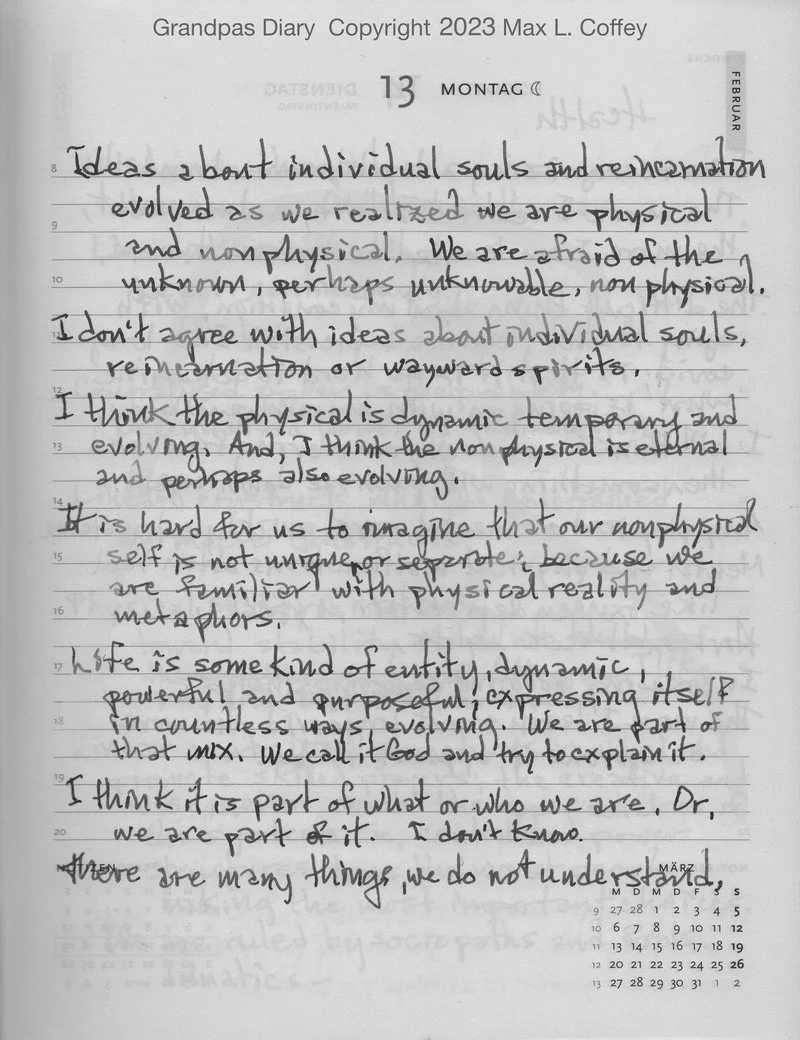 Grandpas Diary Copyright 2023 Max L. Coffey
13 MONTAG ☾
FEBRUAR
8 Ideas about individual souls and reincarnation
evolved as we realized we are physical
9 and nonphysical. We are afraid of the
10 unknown, perhaps unknowable, nonphysical.
11 I don't agree with ideas about individual souls,
reincarnation or wayward spirits.
12 I think the physical is dynamic temporary and
13 evolving. And, I think the nonphysical is eternal
and perhaps also evolving.
14 It is hard for us to imagine that our nonphysical
15 self is not unique, or separate; because we
are familiar with physical reality and
16 metaphors.
17 Life is some kind of entity, dynamic,
powerful and purposeful; expressing itself
18 in countless ways, evolving. We are part of
that mix. We call it God and try to explain it.
19 I think it is part of what or who we are. Or,
20 we are part of it. I don't know.
There are many things, we do not understand,
MÄRZ
M D M D F S S
9 27 28 1 2 3 4 5
10 6 7 8 9 10 11 12
11 13 14 15 16 17 18 19
12 20 21 22 23 24 25 26
13 27 28 29 30 31 1 2